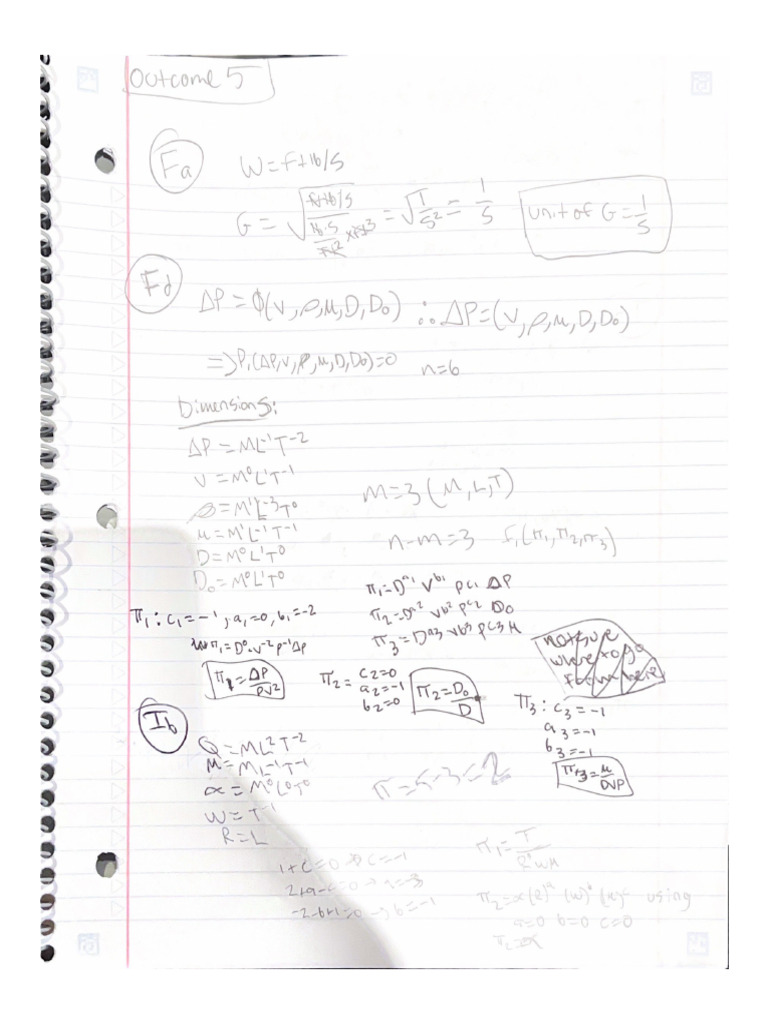 Outcome 5
Fa W = ft lb/s
G = √((ft lb/s)/((lb·s/ft²) × ft³)) = √(1/s²) = 1/s unit of G = 1/s
Fd ΔP = φ(V, ρ, μ, D, D₀) ∴ ΔP = (V, ρ, μ, D, D₀)
=> P₁(ΔP, V, ρ, μ, D, D₀) = 0 n=6
Dimensions:
ΔP = ML⁻¹T⁻²
V = M⁰L¹T⁻¹
ρ = M¹L⁻³T⁰ m=3 (M, L, T)
μ = M¹L⁻¹T⁻¹
D = M⁰L¹T⁰ n-m=3 f₁(π₁, π₂, π₃)
D₀ = M⁰L¹T⁰
π₁ = Dᵃ¹ Vᵇ¹ ρᶜ¹ ΔP
π₂ = Dᵃ² Vᵇ² ρᶜ² D₀
π₃ = Dᵃ³ Vᵇ³ ρᶜ³ μ
π₁: c₁ = -1, a₁ = 0, b₁ = -2
π₁ = D⁰·V⁻² ρ⁻¹ ΔP
π₁ = ΔP/ρV²
π₂ = c₂=0
a₂=-1
b₂=0
π₂ = D₀/D
not sure
where to go
from here
π₃: c₃ = -1
a₃ = -1
b₃ = -1
π₃ = μ/DVρ
Ib Q = ML²T⁻²
μ = ML⁻¹T⁻¹
α = M⁰L⁰T⁰ π = 5-3 = 2
W = T⁻¹
R = L
1+c=0 → c=-1
2+a-c=0 → a=-3
-2-b+1=0 → b=-1
π₁ = T/R³wμ
π₂ = α(R)ᵃ (w)ᵇ (μ)ᶜ using
a=0 b=0 c=0
π₂=α